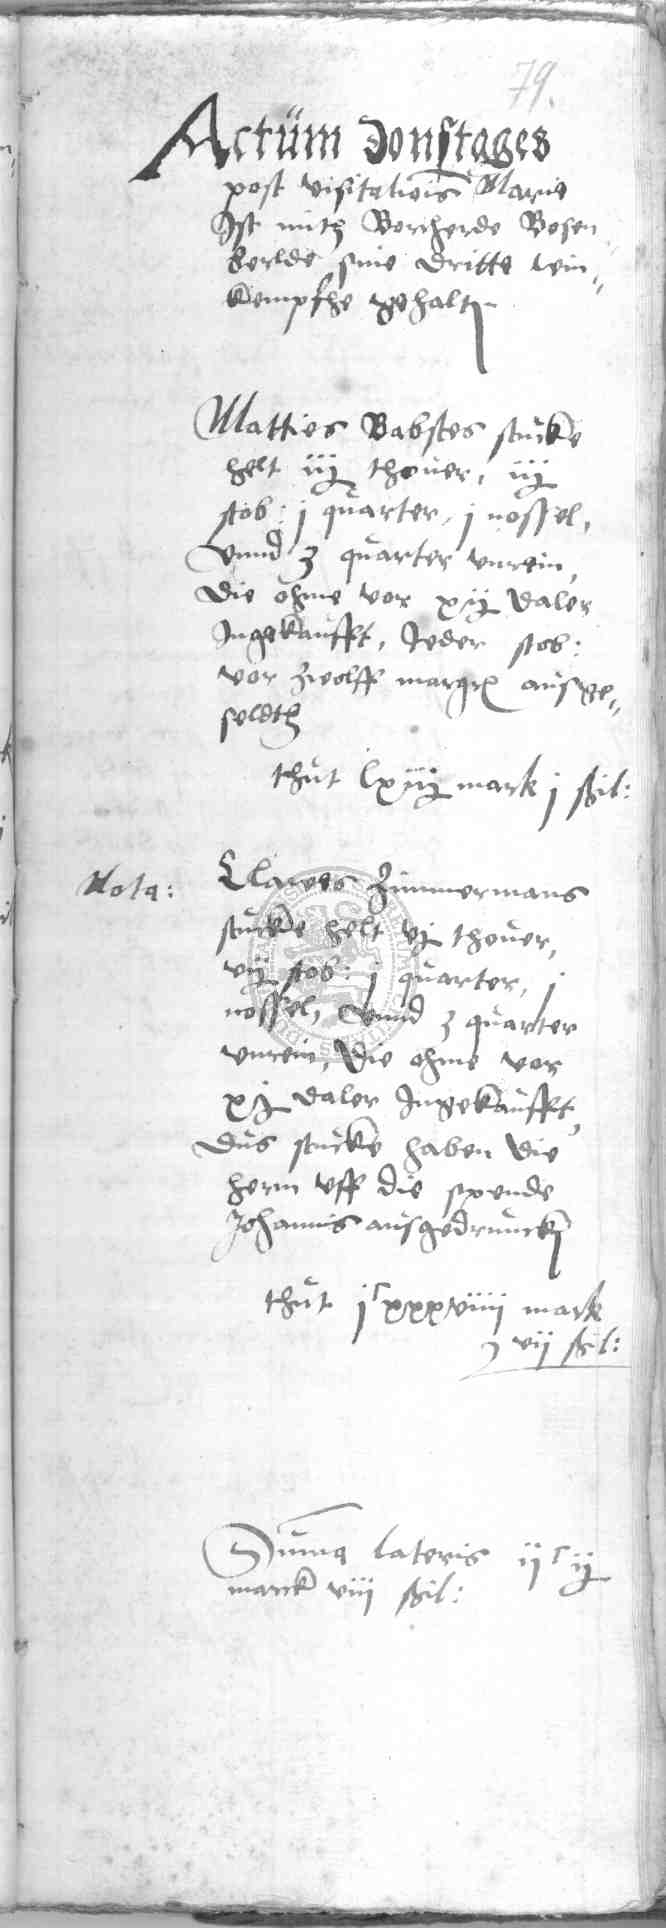 79.
Actüm donstages
post visitatiois Marie
Ist mith Borcherde Bosen
kerlde sine dritte wein
kempfhe gehalt
Matties Babstes stücke
helt iij thover, iij
stob: j quarter, j nossel,
vnnd 3 quarter vnrein,
die ohme vor xij daler
Ingekaufft, Jeder stob:
vor zwolff margr ausge„
seldth
thüt lxiij mark j ßil:
Nota: Clawes Zimmermans
stucke helt vj thover,
vij stob: j quarter, j
nossel, vnnd 3 quarter
vnrein, die ohme vor
xij daler Ingekaufft,
düs stucke haben die
hern vff die spende
Johannis ausgedrunck
thüt jc xxxviiij mark
vij ßil:
Süma lateris ijc ij
marck viij ßil: